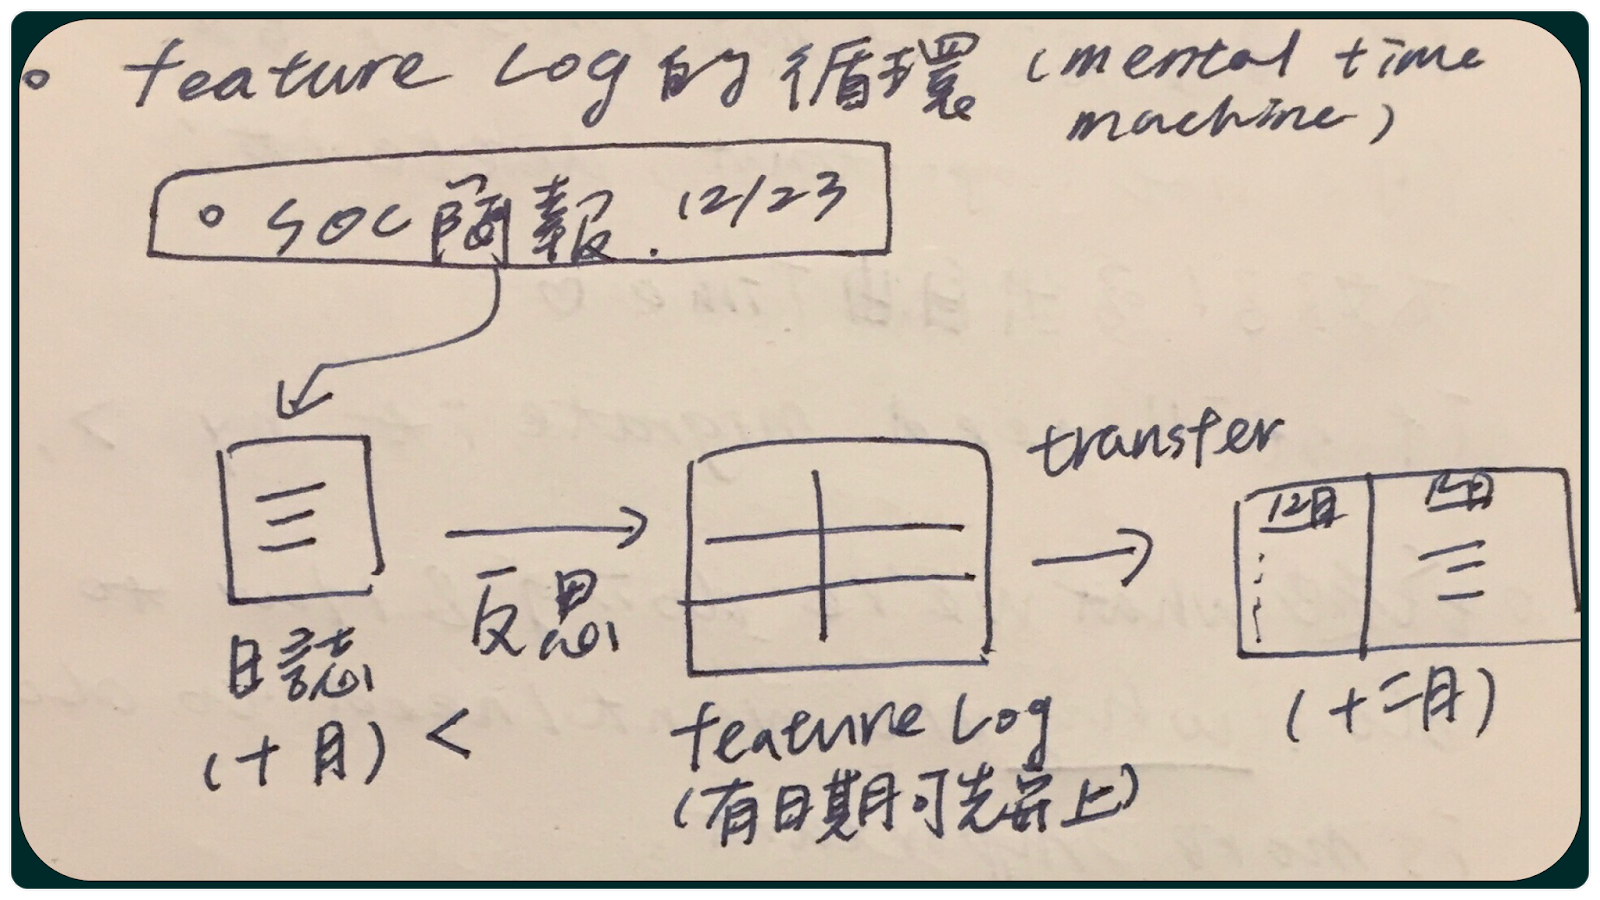 feature Log 的循環 (mental time
machine)
SOC 報. 12/23
transfer
12月 12月
反思
日誌
(十月) <
feature Log
(有日期可先寫上)
(十二月)